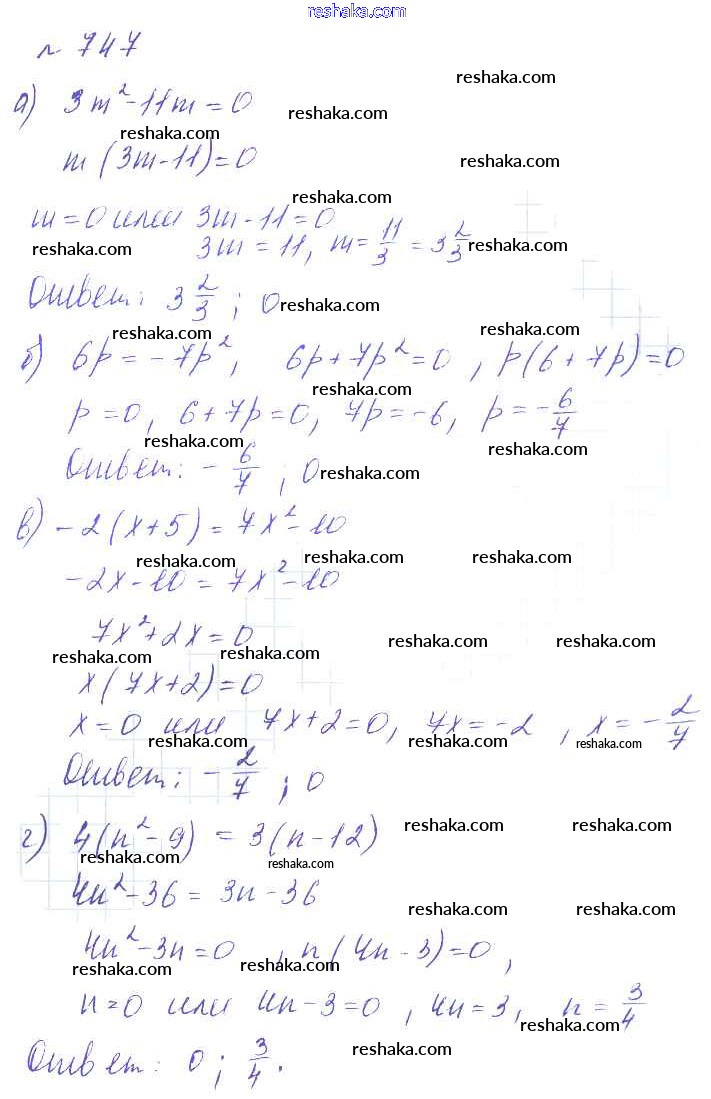 reshaka.com
№ 747
reshaka.com
а) 3m² - 11m = 0
reshaka.com
reshaka.com
m(3m - 11) = 0
reshaka.com
reshaka.com
m = 0 или 3m - 11 = 0
reshaka.com 3m = 11, m = 11/3 = 3 2/3 reshaka.com
Ответ: 3 2/3 ; 0 reshaka.com
reshaka.com reshaka.com
б) 6p = -7p², 6p + 7p² = 0, p(6 + 7p) = 0
reshaka.com
p = 0, 6 + 7p = 0, 7p = -6, p = -6/7
reshaka.com
Ответ: -6/7 ; 0 reshaka.com
в) -2(x + 5) = 7x² - 10
reshaka.com reshaka.com reshaka.com
-2x - 10 = 7x² - 10
7x² + 2x = 0
reshaka.com reshaka.com reshaka.com reshaka.com
x(7x + 2) = 0
x = 0 или 7x + 2 = 0, 7x = -2, x = -2/7
reshaka.com reshaka.com reshaka.com
Ответ: -2/7 ; 0
г) 4(n² - 9) = 3(n - 12) reshaka.com reshaka.com
reshaka.com reshaka.com
4n² - 36 = 3n - 36
reshaka.com reshaka.com
4n² - 3n = 0, n(4n - 3) = 0,
reshaka.com reshaka.com
n = 0 или 4n - 3 = 0, 4n = 3, n = 3/4
reshaka.com
reshaka.com
Ответ: 0 ; 3/4.